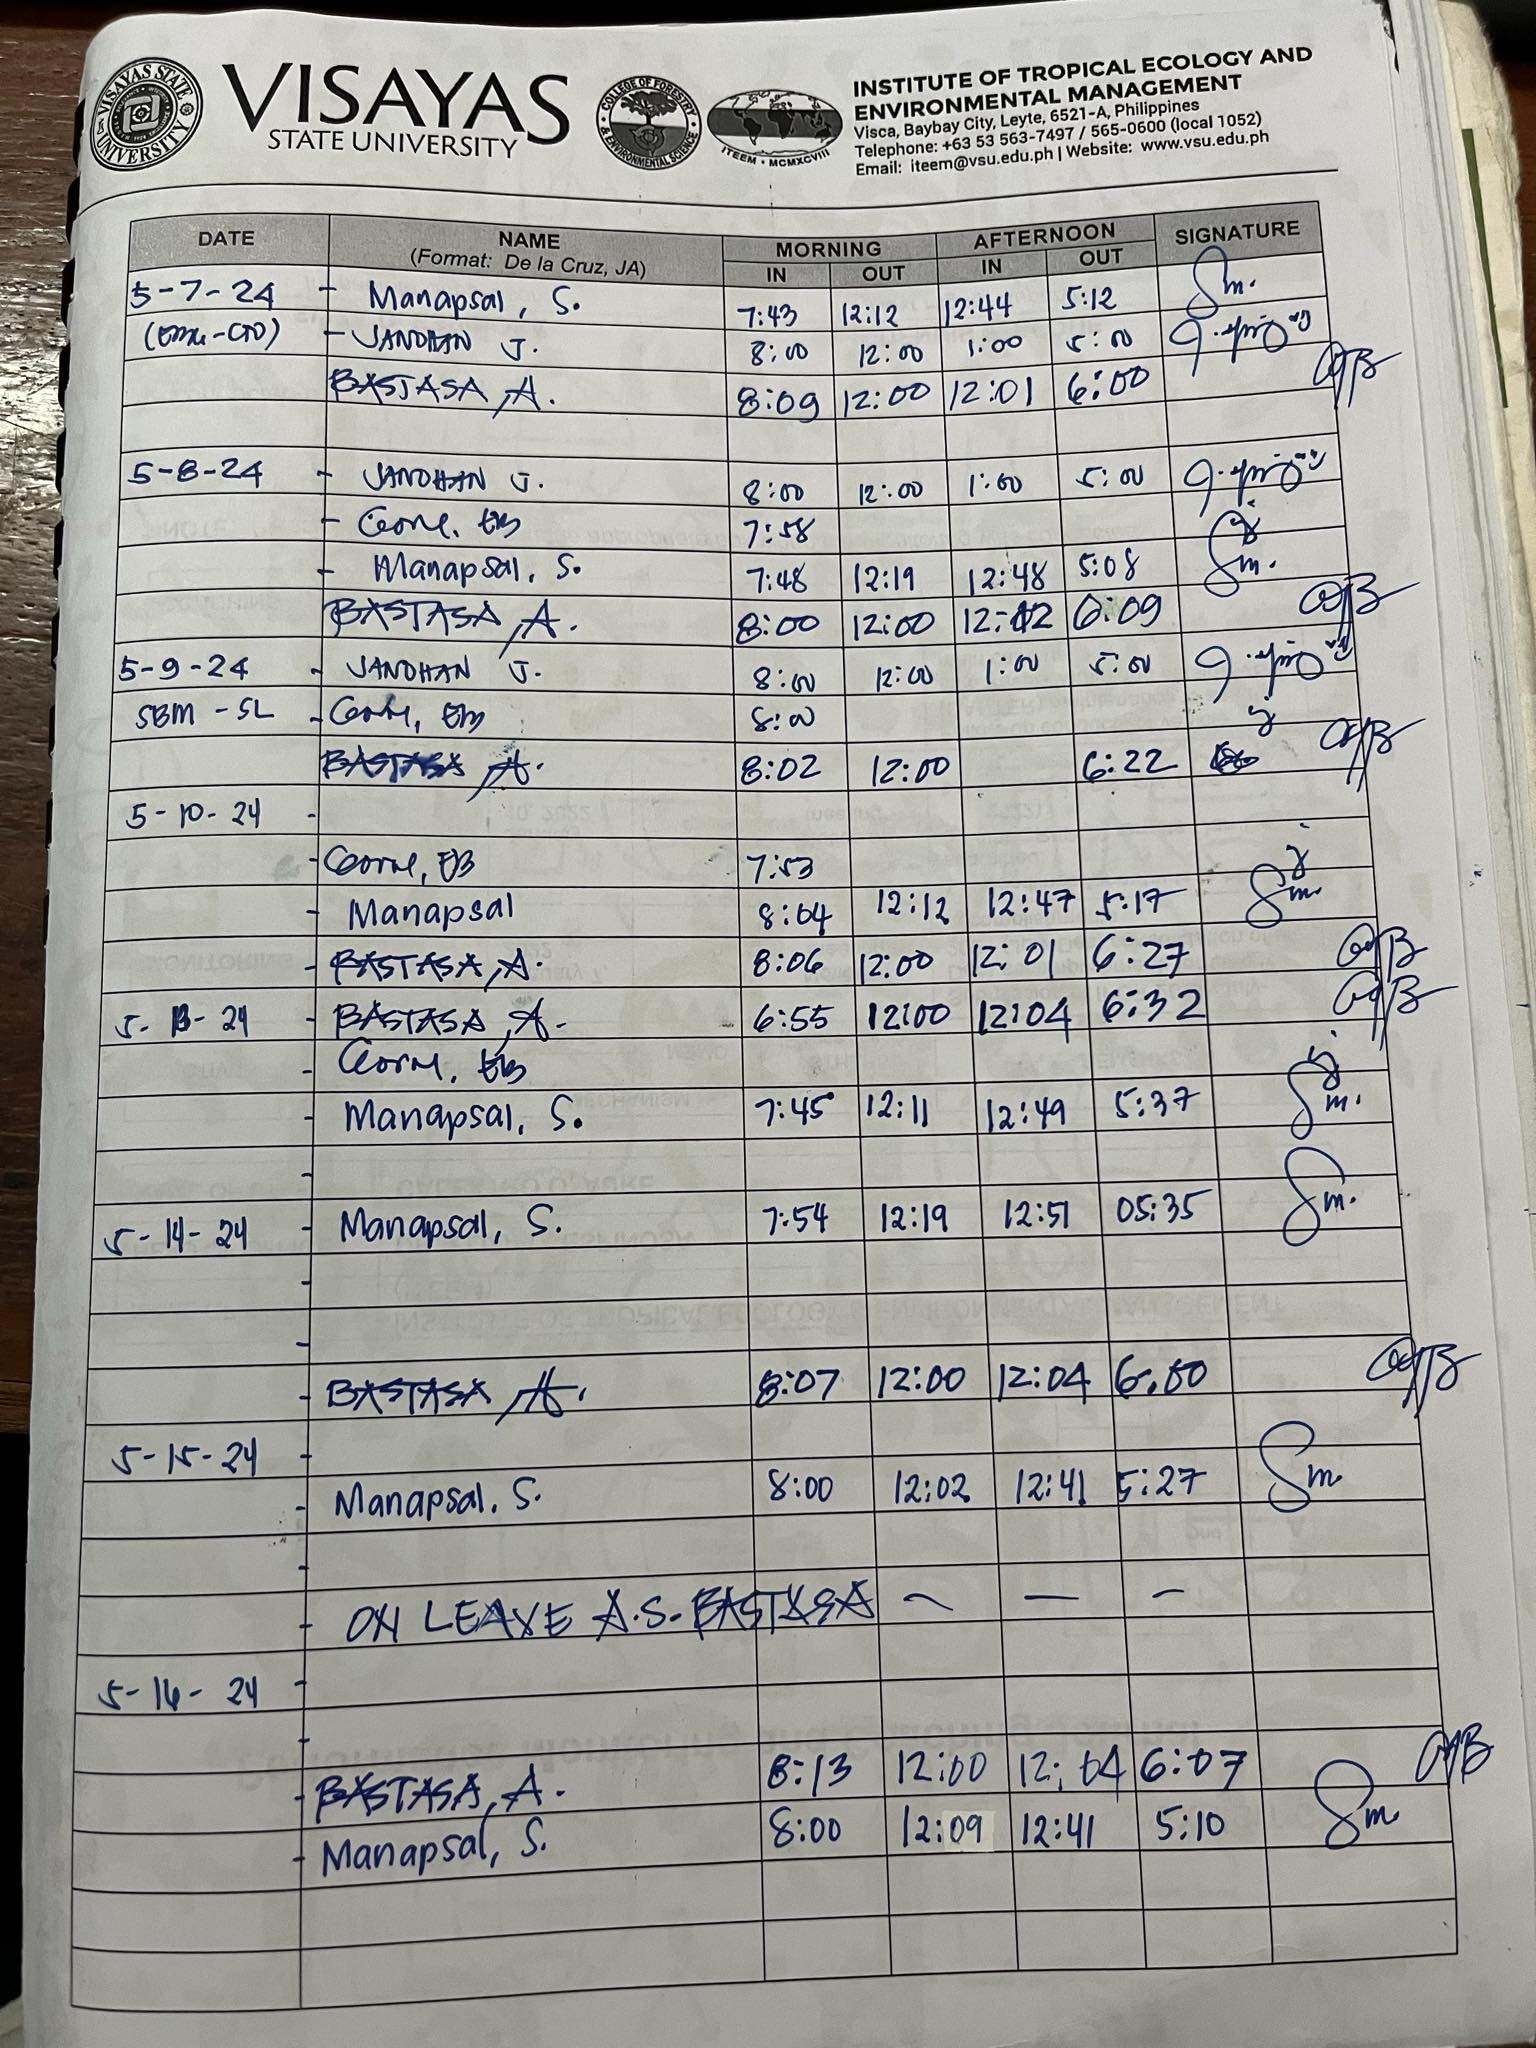 VISAYAS
STATE UNIVERSITY
VISAYAS STATE UNIVERSITY
COLLEGE OF FORESTRY & ENVIRONMENTAL SCIENCE
ITEEM • MCMXCVIII
INSTITUTE OF TROPICAL ECOLOGY AND
ENVIRONMENTAL MANAGEMENT
Visca, Baybay City, Leyte, 6521-A, Philippines
Telephone: +63 53 563-7497 / 565-0600 (local 1052)
Email: iteem@vsu.edu.ph | Website: www.vsu.edu.ph
DATE NAME MORNING AFTERNOON SIGNATURE
(Format: De la Cruz, JA) IN OUT IN OUT
5-7-24 - Manapsal, S. 7:43 12:12 12:44 5:12 Sm.
- JANDHAN J. 8:00 12:00 1:00 5:00
BASTASA, A. 8:09 12:00 12:01 6:00
5-8-24 - JANDHAN J. 8:00 12:00 1:00 5:00
- 7:58
- Manapsal, S. 7:48 12:19 12:48 5:08 Sm.
BASTASA, A. 8:00 12:00 12:12 6:09
5-9-24 - JANDHAN J. 8:00 12:00 1:00 5:00
SBM - SL - 8:00
BASTASA, A. 8:02 12:00 6:22
5-10-24 -
- 7:53
- Manapsal 8:04 12:12 12:47 5:17 Sm.
- BASTASA, A. 8:06 12:00 12:01 6:27
5-13-24 - BASTASA, A. 6:55 12:00 12:04 6:32
-
- Manapsal, S. 7:45 12:11 12:49 5:37 Sm.
-
5-14-24 - Manapsal, S. 7:54 12:19 12:51 05:35 Sm.
-
-
- BASTASA, A. 8:07 12:00 12:04 6:00
5-15-24 -
- Manapsal, S. 8:00 12:02 12:41 5:27 Sm
-
- ON LEAVE A.S. BASTASA - - -
5-16-24 -
-
- BASTASA, A. 8:13 12:00 12:04 6:07
- Manapsal, S. 8:00 12:09 12:41 5:10 Sm.